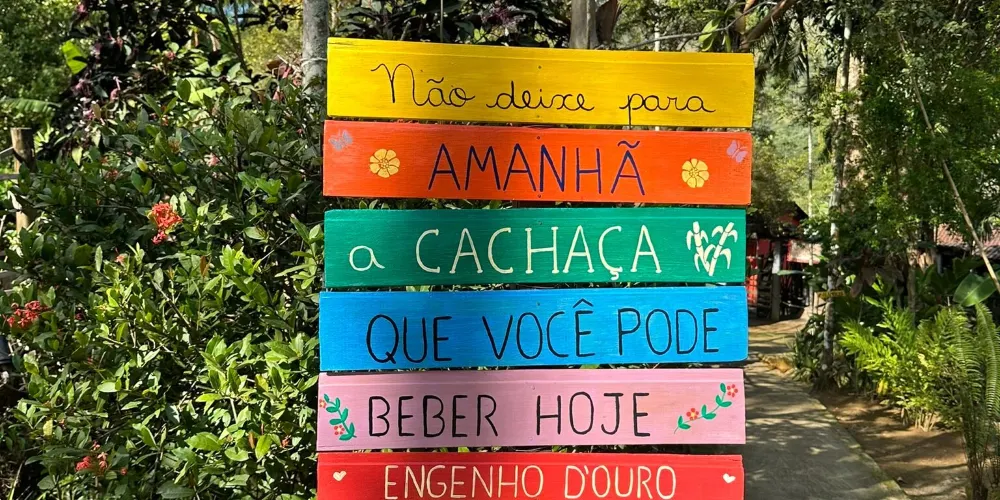 Não deixe para
AMANHÃ
a CACHAÇA
QUE VOCÊ PODE
BEBER HOJE
ENGENHO D'OURO